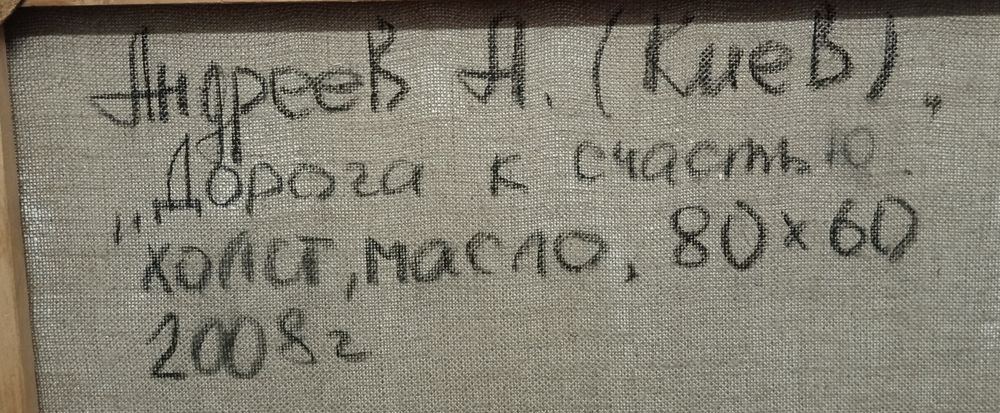 Андреев А. (Киев)
„Дорога к счастью"
холст, масло, 80х60
2008г